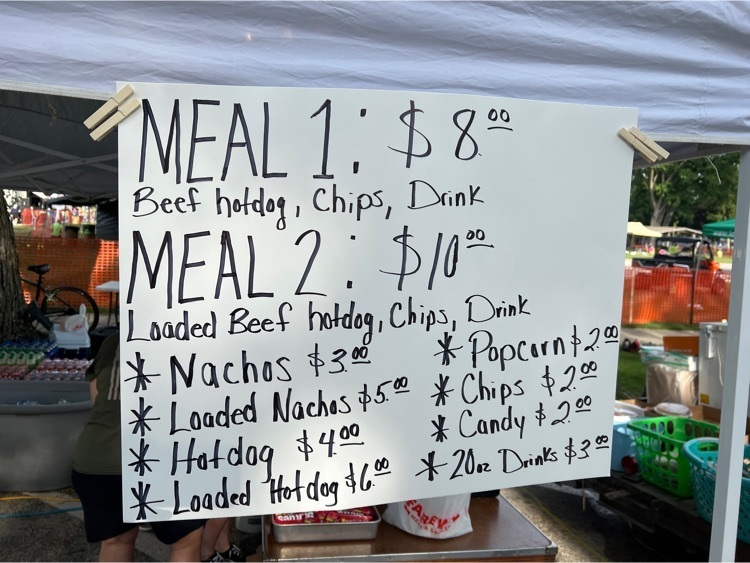 MEAL 1: $8.00
Beef hotdog, Chips, Drink
MEAL 2: $10.00
Loaded Beef hotdog, Chips, Drink
* Nachos $3.00
* Loaded Nachos $5.00
* Hotdog $4.00
* Loaded Hotdog $6.00
* Popcorn $2.00
* Chips $2.00
* Candy $2.00
* 20oz Drinks $3.00